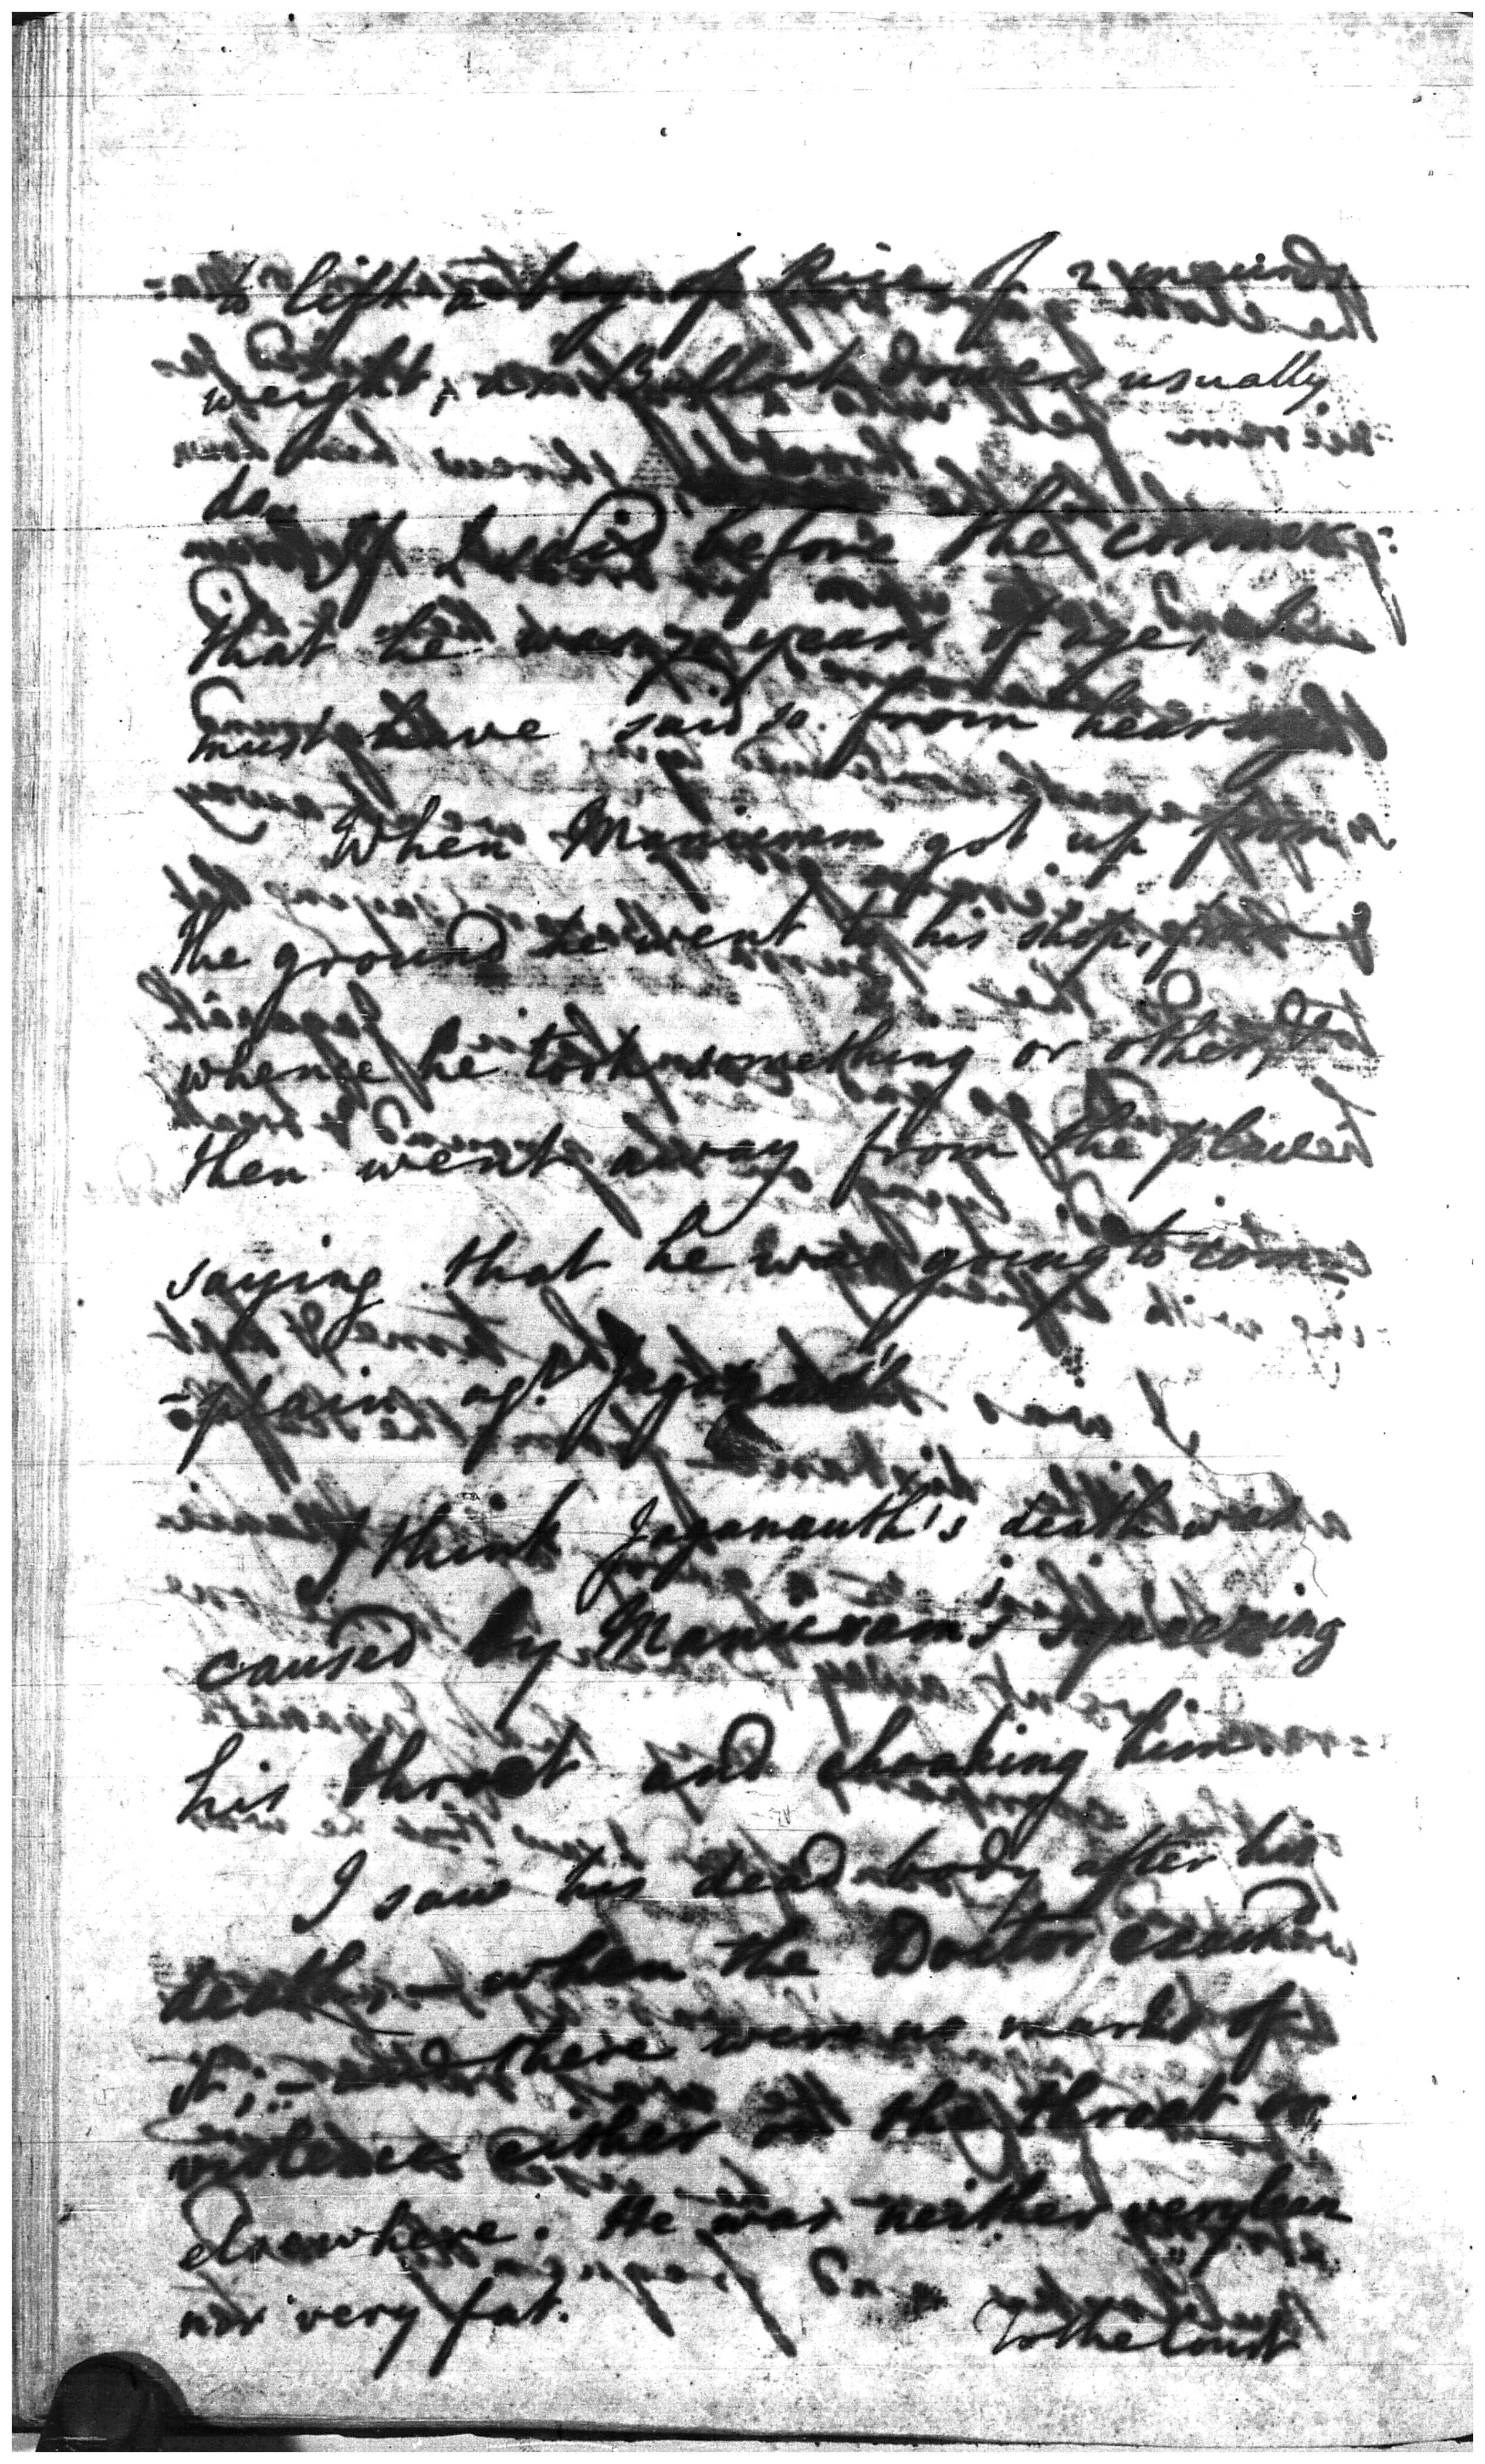 to lift a bag of Rice of 2 maunds
weight, as Bullock Drivers usually
do. If I said before the commg:
that he was 70 years of age, I
must have said so from hearsay.
When Maniram got up from
the ground he went to his shop, from
whence he took something or other, &
then went away from the place
saying that he was going to com=
=plain agt. Jagganauth
I think Jaganauth's death was
caused by Maniram's squeezing
his throat and choaking him
I saw his dead body after his
death - when the Doctor examined
it; - and there were no marks of
violence either on the throat or
elsewhere. He was neither very lean
nor very fat.
To the Court